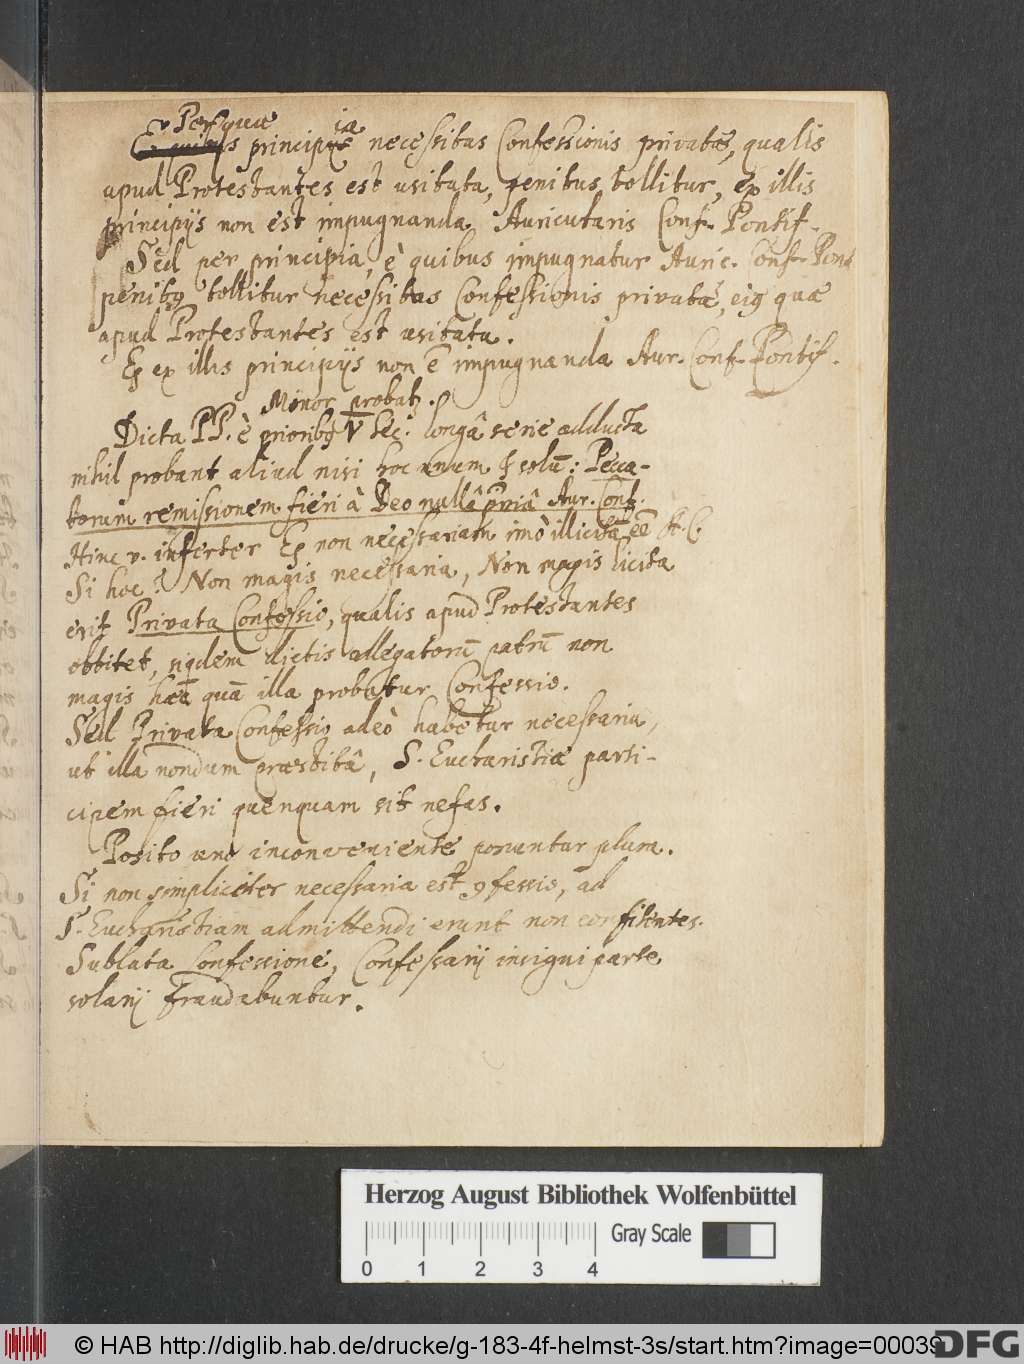 Per quae
principia necessitas Confessionis privatae, qualis
apud Protestantes est usitata, penitus tollitur, ex illis
principijs non est impugnanda Auricularis Conf. Pontif.
Sed per principia, è quibus impugnatur Auric. Conf. Pont
penitq tollitur necessitas Confessionis privatae, eiq quae
apud Protestantes est usitata.
Eg ex illis principijs non ē impugnanda Aur. Conf. Pontif.
Minor probatz.
Dicta PP. è prioribq V Sec. longâ serie adducta
nihil probant aliud nisi hoc unum & solū: Pecca-
torum remissionem fieri à Deo nullâ priâ Aur. Conf.
Hinc v. infertur Eg non necessariam imò illicitā eē A. C.
Si hoc? Non magis necessaria, Non magis licita
erit Privata Confessio, qualis apud Protestantes
obtitet, siqdem dictis allegatorū patrū non
magis haec quā illa probatur Confessio.
Sed Privata Confessio adeò habetur necessaria,
ut illa nondum praestitâ, S. Eucharistiae parti-
cipem fieri quenquam sit nefas.
Posito uno inconveniente ponuntur plura.
Si non simpliciter necessaria est 9fessio, ad
S. Eucharistiam admittendi erunt non confitentes.
Sublata Confessione, Confessarij insigni parte
solarij fraudabuntur.
Herzog August Bibliothek Wolfenbüttel
Gray Scale
0 1 2 3 4
© HAB http://diglib.hab.de/drucke/g-183-4f-helmst-3s/start.htm?image=00039
DFG